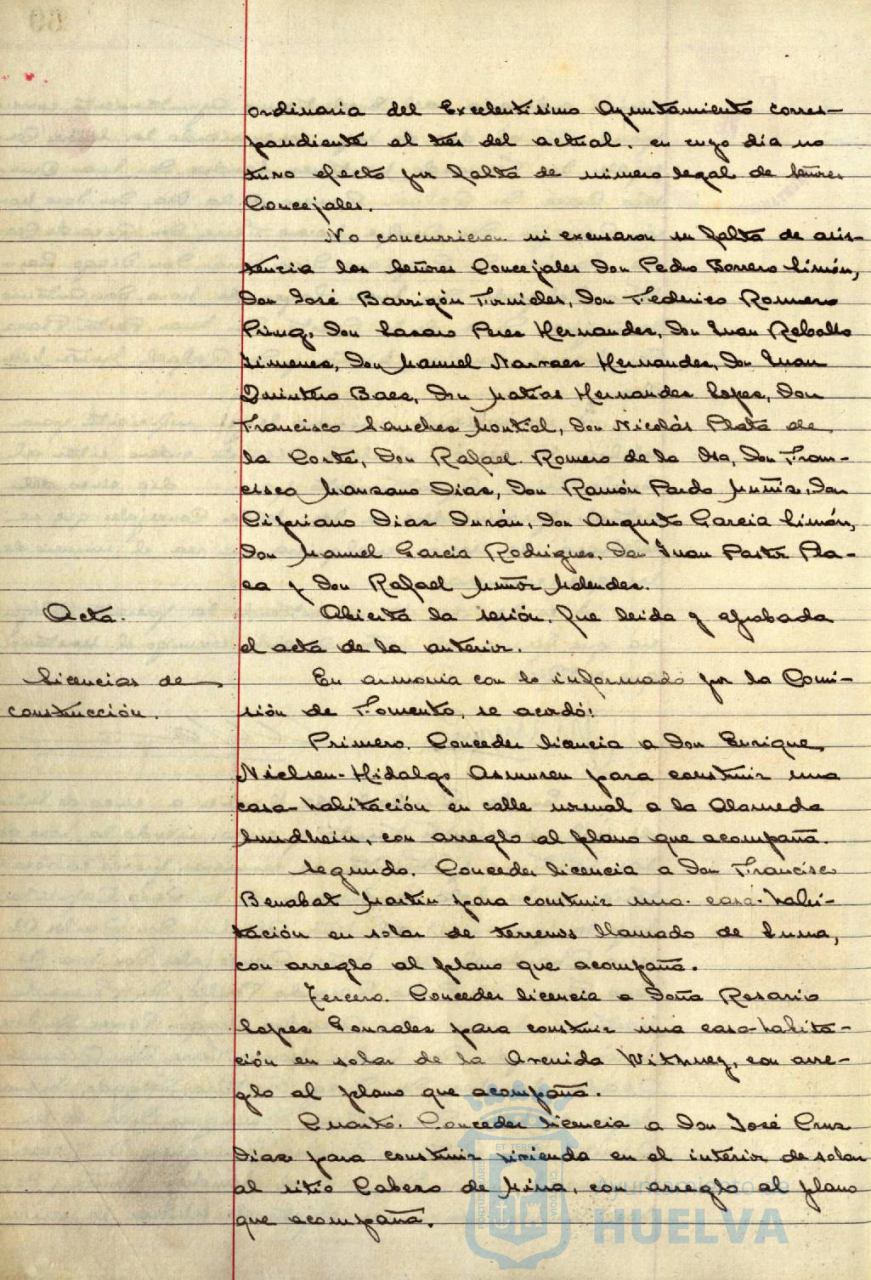 ordinaria del Excelentísimo Ayuntamiento corres-
pondiente al tres del actual, en cuyo día no
tuvo efecto por falta de número legal de Señores
Concejales.
No concurrieron ni excusaron su falta de asis-
tencia los Señores Concejales Don Pedro Borrero Limón,
Don José Barrigón Fornieles, Don Federico Romero
Don Lazaro Perez Hernandez, Don Juan Rebollo
Jimenez, Don Manuel Narvaez Hernandez, Don Juan
Quintero Baez, Don Matías Hernandez Lopez, Don
Francisco Sanchez Montiel, Don Nicolás Plata de
la Corte, Don Rafael Romero de la Osa, Don Fran-
cisco Manzano Diaz, Don Ramón Pardo Muñiz, Don
Cipriano Diaz Durán, Don Augusto Garcia Limón,
Don Manuel García Rodriguez, Don Juan Pastor Pla-
za y Don Rafael Muñoz
Acta.
Abierta la sesión, fue leida y aprobada
el acta de la anterior.
Licencias de
construcción.
En armonia con lo informado por la Comi-
sión de Fomento, se acordó:
Primero. Conceder licencia a Don Enrique
Nielsen-Hidalgo Asmusen para construir una
casa-habitación en calle normal a la Alameda
Sundheim, con arreglo al plano que acompaña.
Segundo. Conceder licencia a Don Francisco
Benabat Martín para construir una casa-habi-
tación en solar de terrenos llamado de
con arreglo al plano que acompaña.
Tercero. Conceder licencia a Doña Rosario
Lopez Gonzalez para construir una casa-habita-
ción en solar de la Avenida con arre-
glo al plano que acompaña.
Cuarto. Conceder licencia a Don José Cruz
Diaz para construir vivienda en el interior de solar
al sitio Cabezo de Mina, con arreglo al plano
que acompaña.
HUELVA